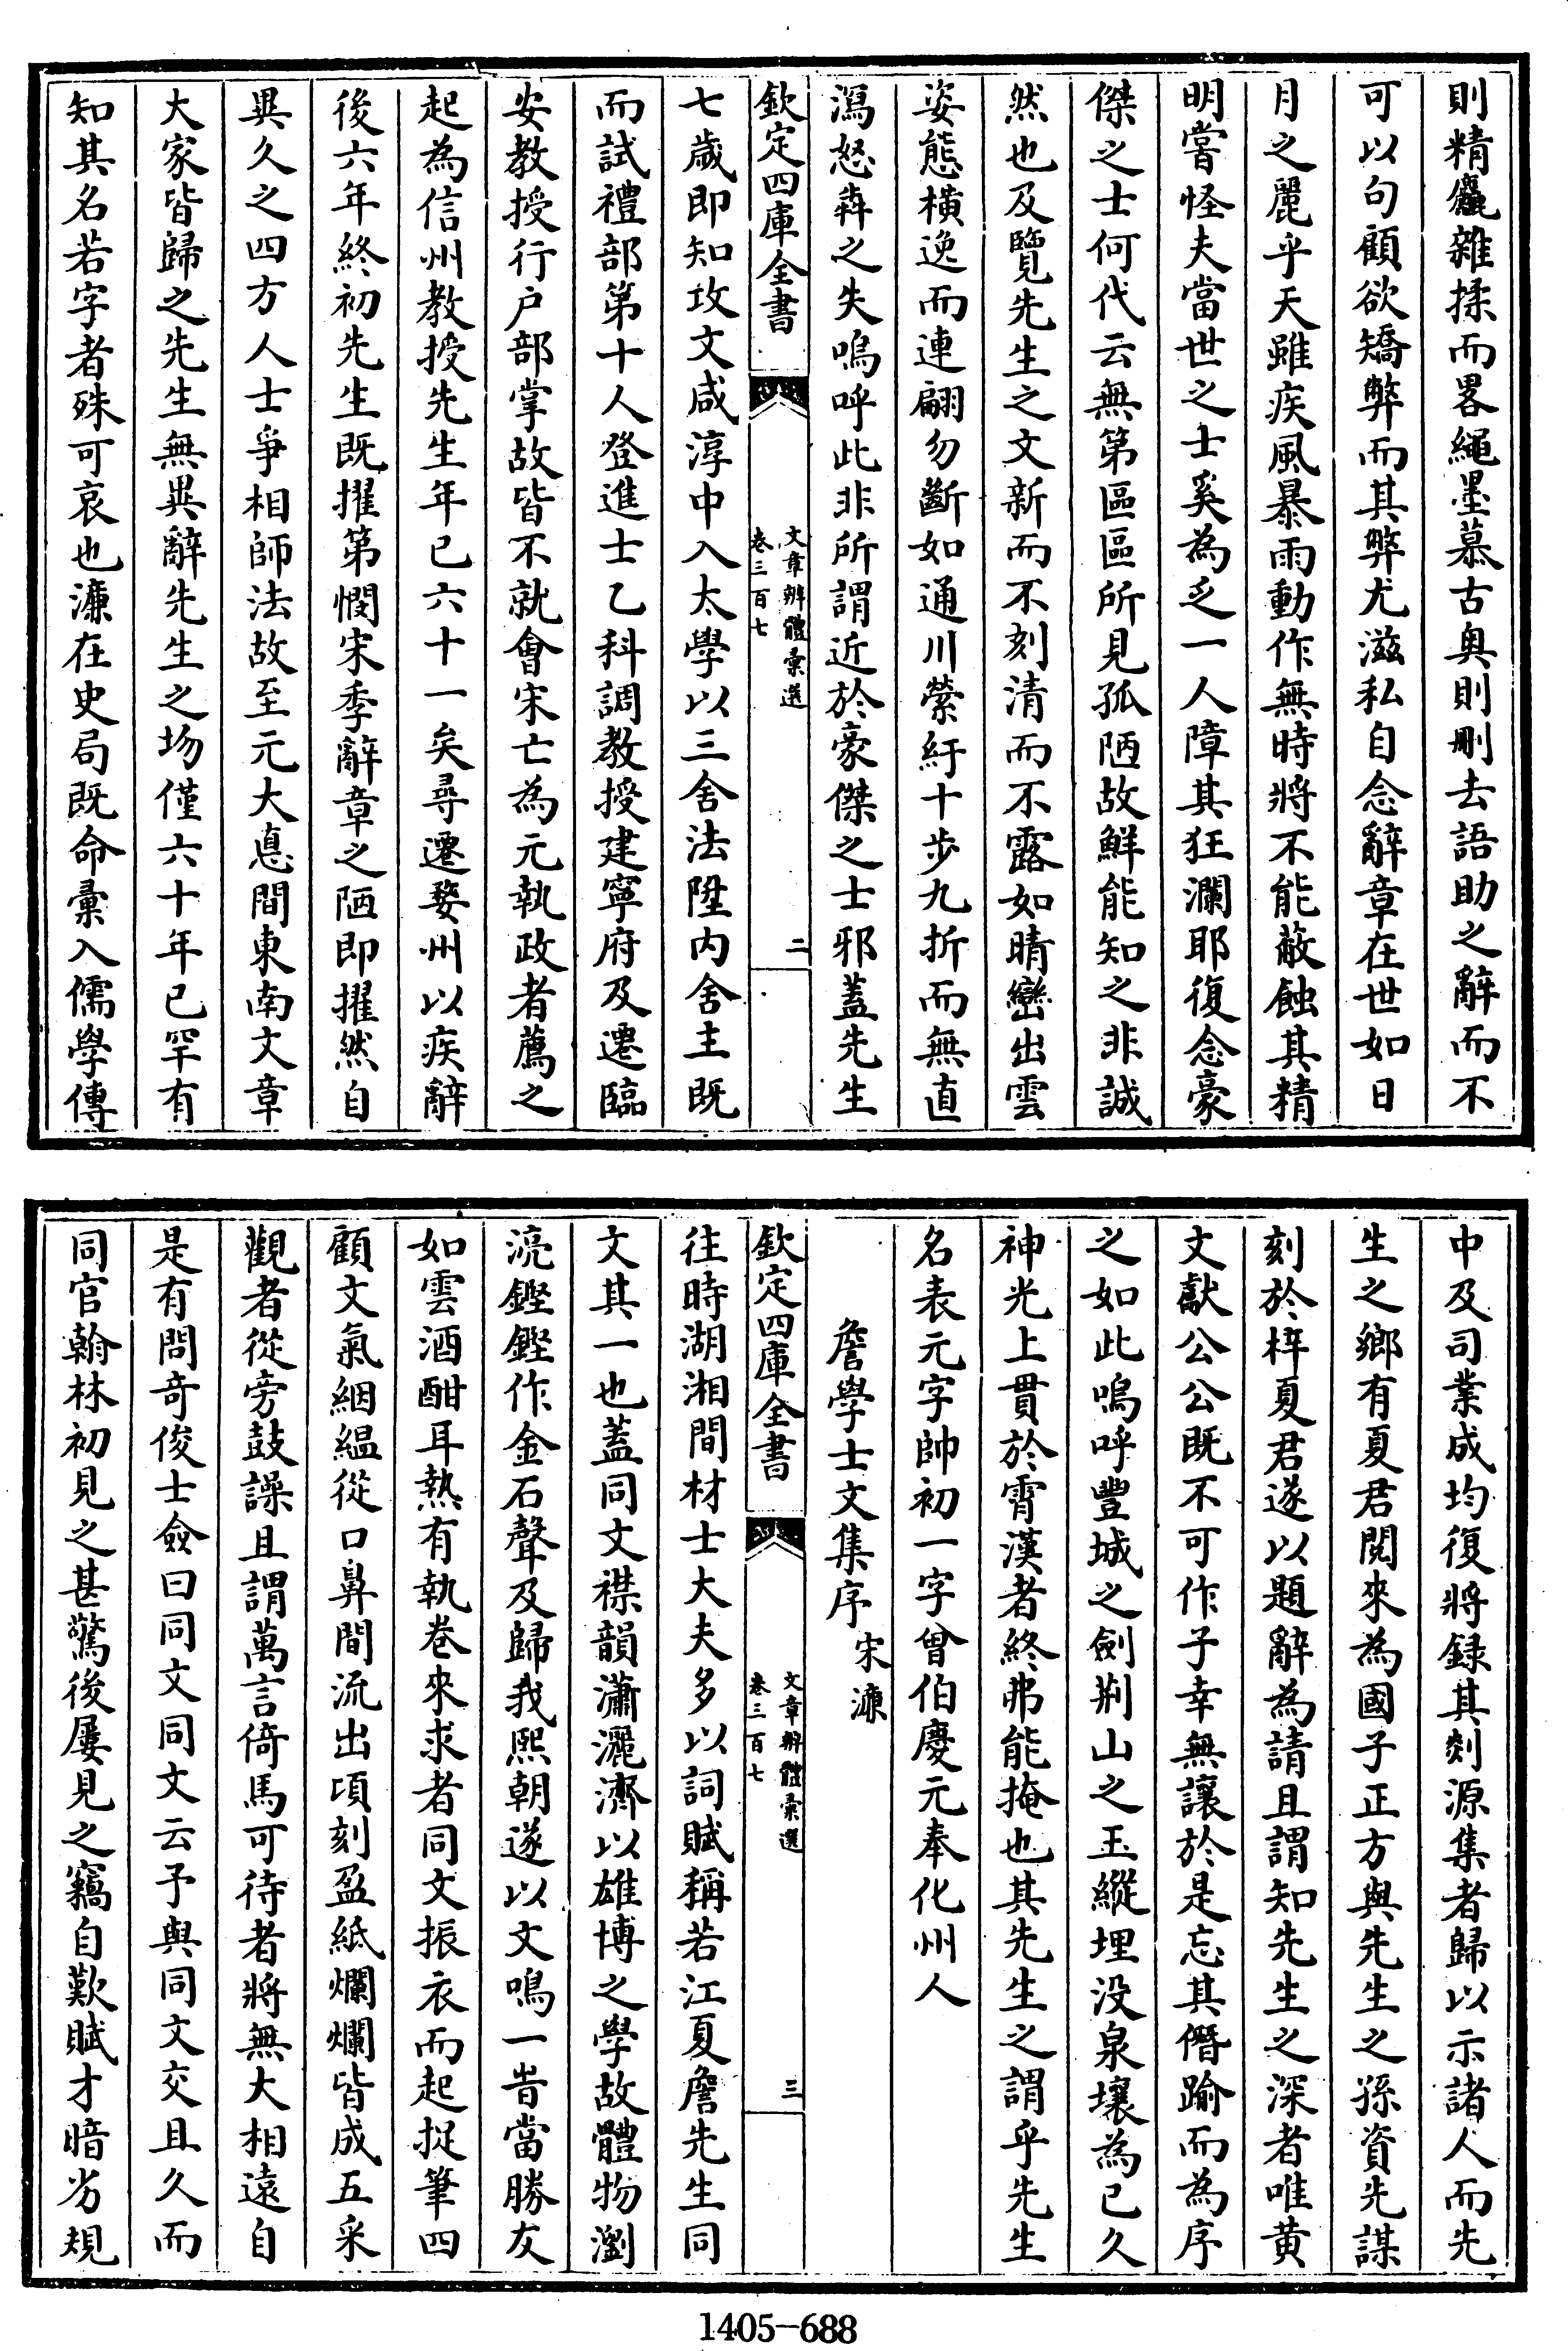 則精麤雜揉而畧繩墨慕古奥則刪去語助之辭而不
可以句顧欲矯弊而其弊尤滋私自念辭章在世如日
月之麗乎天雖疾風暴雨動作無時將不能蔽蝕其精
明嘗怪夫當世之士奚為乏一人障其狂瀾耶復念豪
傑之士何代云無第區區所見孤陋故鮮能知之非誠
然也及覽先生之文新而不刻清而不露如晴巒出雲
姿態横逸而連翩勿斷如通川縈紆十步九折而無直
瀉怒犇之失嗚呼此非所謂近於豪傑之士邪蓋先生
欽定四庫全書
文章辨體彚選
卷三百七
二
七歲即知攻文咸淳中入太學以三舍法陞内舍主既
而試禮部第十人登進士乙科調教授建寧府及遷臨
安教授行户部掌故皆不就會宋亡為元執政者薦之
起為信州教授先生年已六十一矣尋遷婺州以疾辭
後六年終初先生既擢第憫宋季辭章之陋即擢然自
異久之四方人士爭相師法故至元大悳間東南文章
大家皆歸之先生無異辭先生之歾僅六十年已罕有
知其名若字者殊可哀也濂在史局既命彚入儒學傳
中及司業成均復將録其剡源集者歸以示諸人而先
生之鄉有夏君閱來為國子正方與先生之孫資先謀
刻於梓夏君遂以題辭為請且謂知先生之深者唯黄
文獻公公既不可作子幸無讓於是忘其僭踰而為序
之如此嗚呼豐城之劍荆山之玉縱埋没泉壤為已久
神光上貫於霄漢者終弗能掩也其先生之謂乎先生
名表元字帥初一字曾伯慶元奉化州人
詹學士文集序 宋濂
欽定四庫全書
文章辨體彚選
卷三百七
三
往時湖湘間材士大夫多以詞賦稱若江夏詹先生同
文其一也蓋同文襟韻瀟灑濟以雄博之學故體物瀏
湸鏗鏗作金石聲及歸我熙朝遂以文鳴一旹當勝友
如雲酒酣耳熱有執卷來求者同文振衣而起捉筆四
顧文氣絪緼從口鼻間流出頃刻盈紙爛爛皆成五采
觀者從旁鼓譟且謂萬言倚馬可待者將無大相遠自
是有問竒俊士僉曰同文同文云予與同文交且久而
同官翰林初見之甚驚後屢見之竊自歎賦才暗劣規
1405-688